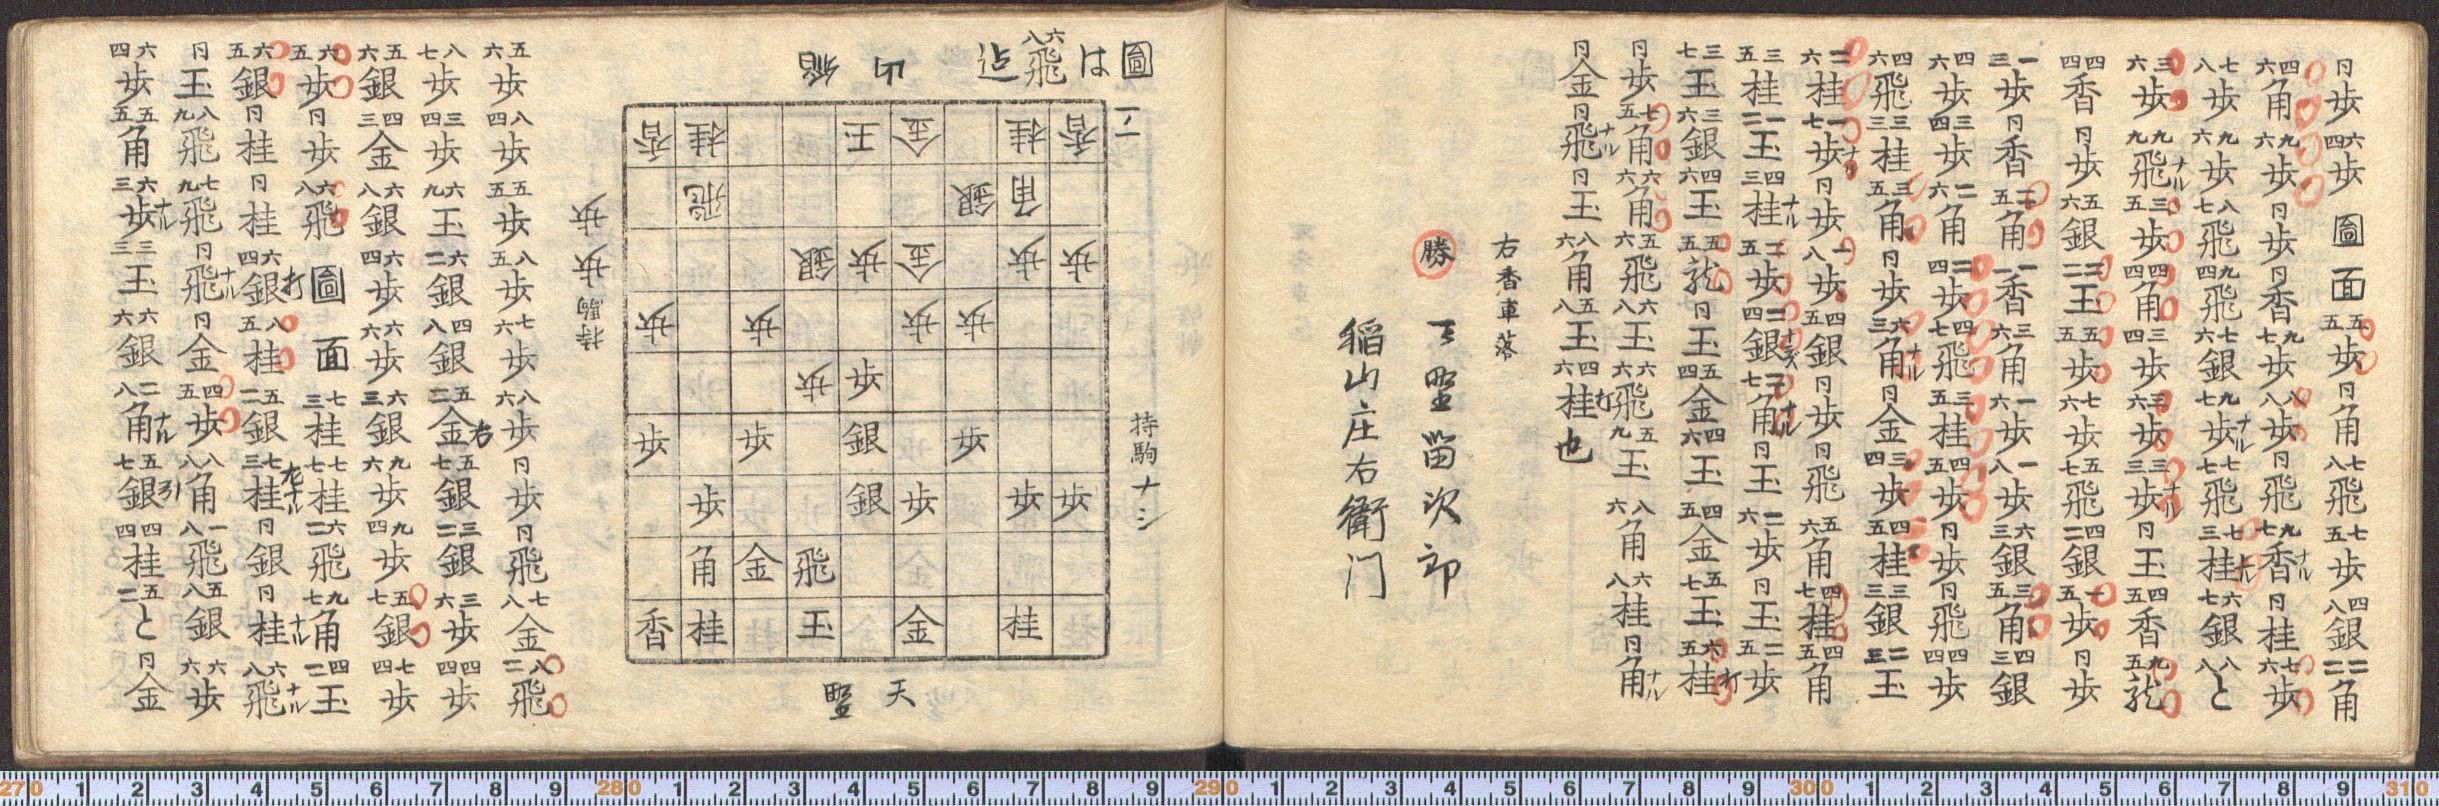 同歩 六四歩 圖面 五五歩 同角 七八飛 七五歩 四八銀 二二角
四六角 九六歩 同歩 同香 九七歩 八八歩 同飛 九七香ナル 同桂 七六歩
七八歩 九六歩 八七飛 九四飛 七六銀 九七歩ナル 七七飛 七三桂ナル 六七銀 八八と
三六歩 九九飛ナル 三五歩 四四角 三四歩 三六歩 三三歩ナル 同玉 四五香 九五龍
四四香 同歩 五六銀 二二玉 五五歩 七六歩 五七飛 四二銀 一五歩 同歩
一三歩 同香 二五角 一一香 三六角 一六歩 一八歩 六三銀 三五角 四三銀
四六歩 三四歩 二六角 二四歩 四七飛 三五桂 四五歩 同歩 同飛 四四歩
四六飛 三三桂 三五角 同歩 六三角ナル 同金 三四歩 四五桂 三三銀 二三玉
二六桂 一七歩ナル 同歩 一八歩 四五銀 同歩 同飛 五六角 四七桂 四五角
三五桂 一二玉 四三桂ナル 二五歩 二四銀ナズ 二七角ナル 同玉 二六歩 同玉 二五歩
三七玉 三六銀 四六玉 五五龍 同玉 五四金 四六玉 四五金 五七玉 六五桂打
同歩 七五角 六六角 五六飛 六八玉 六六飛 五九玉 八六角 六八桂 同角ナル
同金 同飛ナル 同玉 八六角 五八玉 四六桂打也
右香車落
勝 天野留次郎
稲山庄右衛門
圖は六八飛迄
稲山
持駒ナシ
香桂玉金桂香
飛銀角
銀歩金歩歩
歩歩歩歩
歩歩
歩歩銀歩
歩銀歩歩歩
角金飛
香桂玉金桂
天野
持駒 歩歩
五六歩 八四歩 五五歩 八五歩 七六歩 八六歩 同歩 同飛 七八金 八二飛
八七歩 三四歩 六九玉 六二銀 四八銀 五二金右 五七銀 三二銀 三六歩 四四歩
五六銀 四三金 六八銀 六四歩 六六歩 六三銀 九六歩 九四歩 五七銀 七四歩
六五歩 同歩 六八飛 圖面 七三桂 七七桂 六二飛 九七角 四二玉
六五銀 同桂 同桂 六四銀打 八五桂 五二銀 七三桂左ナル 同銀 同桂ナル 六八飛ナル
同玉 八九飛 七九飛 同飛ナル 同金 四五歩 八八角 一八飛 五八銀 六六歩
六四歩 五五角 六三歩ナル 三三玉 六六銀 二八角ナル 五七銀引 四四桂 五二と 同金
270 1 2 3 4 5 6 7 8 9 280 1 2 3 4 5 6 7 8 9 290 1 2 3 4 5 6 7 8 9 300 1 2 3 4 5 6 7 8 9 310